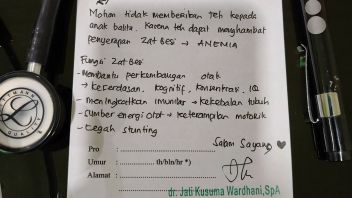 Mohon tidak memberikan teh kepada
anak balita. Karena teh dapat menghambat
penyerapan zat besi → ANEMIA
Fungsi zat besi
- Membantu perkembangan otak
↳ kecerdasan, kognitif, konsentrasi, IQ
- meningkatkan imunitas → kekebalan tubuh
- Sumber energi otot → keterampilan motorik
- Cegah stunting
Salam Sayang
Pro :
Umur : th/bln/hr *)
Alamat :
dr. Jati Kusuma Wardhani,SpA